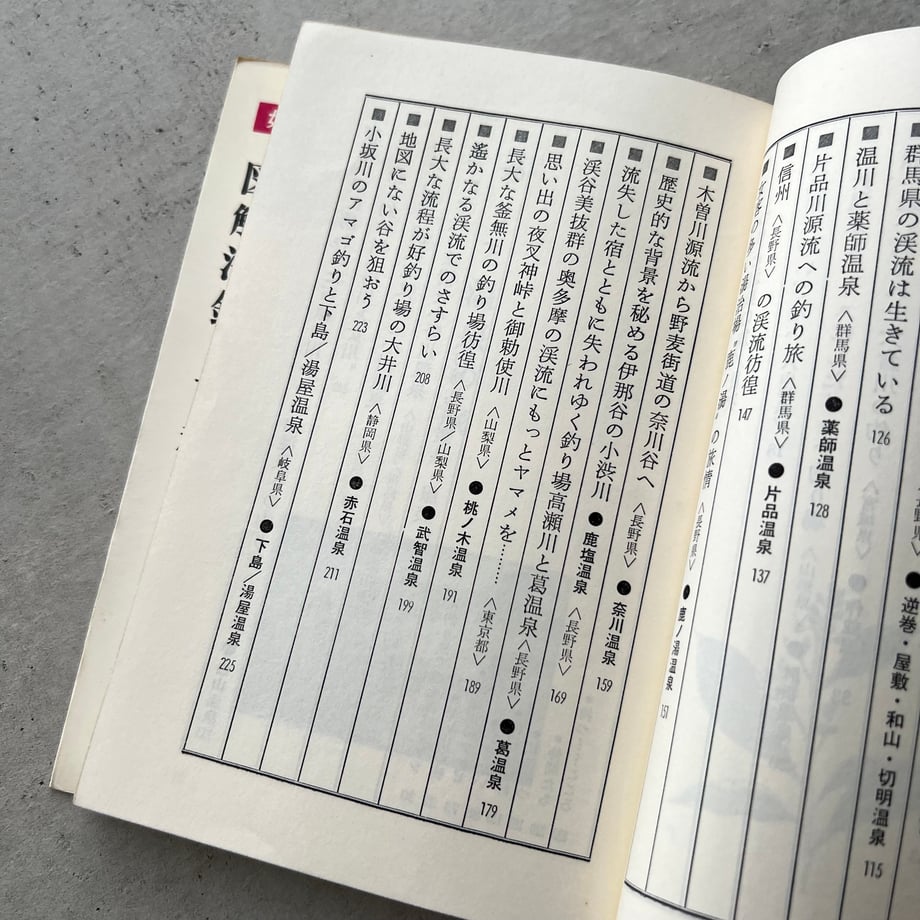 野県〉●逆巻・屋敷・和山・切明温泉 115
■群馬県の渓流は生きている 126
■温川と薬師温泉〈群馬県〉●薬師温泉 128
■片品川源流への釣り旅〈群馬県〉●片品温泉 137
■信州〈長野県〉の渓流彷徨 147
の旅情 ●鹿ノ湯温泉 151
■木曽川源流から野麦街道の奈川谷へ〈長野県〉●奈川温泉 159
■歴史的な背景を秘める伊那谷の小渋川 ●鹿塩温泉〈長野県〉 169
■流失した宿とともに失われゆく釣り場高瀬川と葛温泉〈長野県〉●葛温泉 179
■渓谷美抜群の奥多摩の渓流にもっとヤマメを………〈東京都〉 189
■思い出の夜叉神峠と御勅使川〈山梨県〉●桃ノ木温泉 191
■長大な釜無川の釣り場彷徨〈長野県/山梨県〉●武智温泉 199
■遙かなる渓流でのさすらい 208
■長大な流程が好釣り場の大井川〈静岡県〉●赤石温泉 211
■地図にない谷を狙おう 223
■小坂川のアマゴ釣りと下島/湯屋温泉〈岐阜県〉●下島/湯屋温泉 225